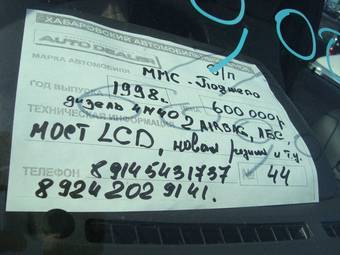 ХАБАРОВСКИЙ АВТОМОБИЛЬНЫЙ
AUTO DEALER
б/п
МАРКА АВТОМОБИЛЯ
ММС - Паджеро
ГОД ВЫПУСКА 1998г. 600 000р
ТЕХНИЧЕСКАЯ ИНФОРМАЦИЯ
дизель 4М40 2 AIRBAG, АБС,
мост LCD, новая резина и т.д.
ТЕЛЕФОН 89145431737 44
89242029141.